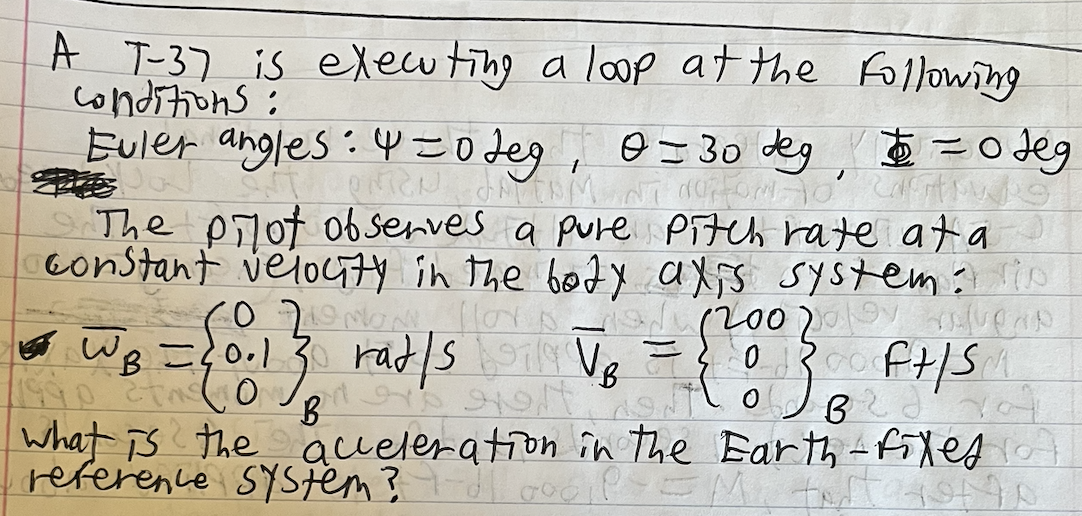 A T-37 is executing a loop at the following
conditions:
Euler angles: Ψ = 0 deg, θ = 30 deg, Φ = 0 deg
The pilot observes a pure pitch rate at a
constant velocity in the body axis system:
ω̅_B = {0 0.1 0}_B rad/s V̅_B = {200 0 0}_B ft/s
what is the acceleration in the Earth-fixed
reference system?